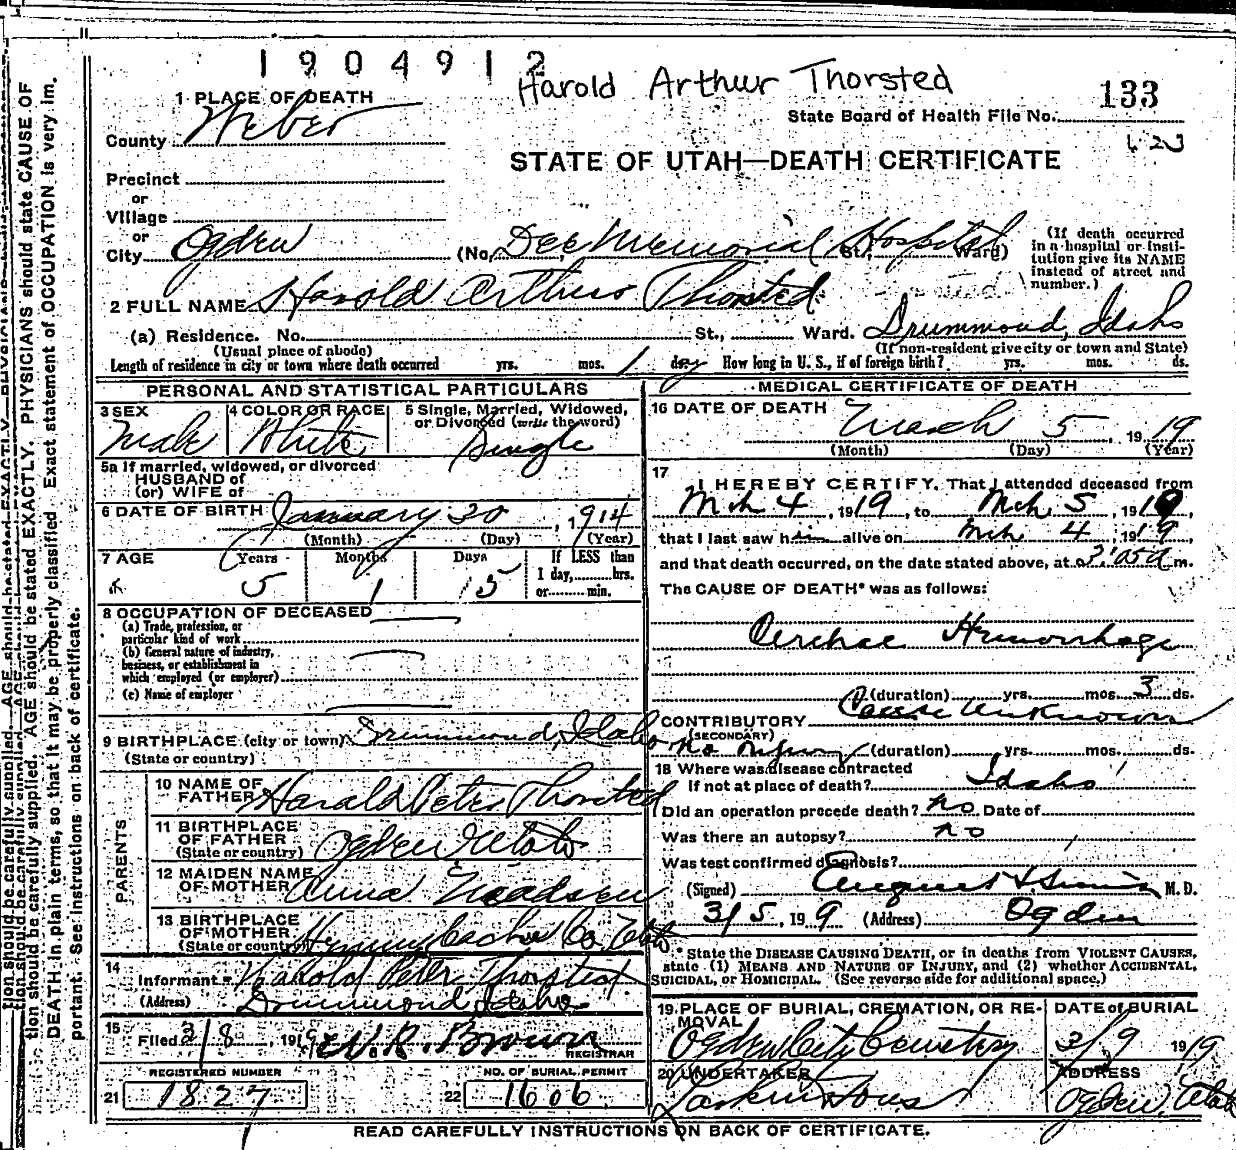 1904912
Harold Arthur Thorsted
133
1 PLACE OF DEATH
State Board of Health File No.
County Weber
623
STATE OF UTAH—DEATH CERTIFICATE
Precinct
or
Village
or
City Ogden (No. Dee Memorial Hospital St., Ward)
(If death occurred in a hospital or institution give its NAME instead of street and number.)
2 FULL NAME Harold Arthur Thorsted
(a) Residence. No. St., Ward. Drummond, Idaho
(Usual place of abode) (If non-resident give city or town and State)
Length of residence in city or town where death occurred yrs. mos. 1 day ds. How long in U. S., if of foreign birth? yrs. mos. ds.
PERSONAL AND STATISTICAL PARTICULARS
3 SEX Male
4 COLOR OR RACE White
5 Single, Married, Widowed, or Divorced (write the word) Single
5a If married, widowed, or divorced
HUSBAND of
(or) WIFE of
6 DATE OF BIRTH January 20, 1914
(Month) (Day) (Year)
7 AGE Years Months Days If LESS than
5 1 15 1 day, hrs.
or min.
8 OCCUPATION OF DECEASED
(a) Trade, profession, or
particular kind of work
(b) General nature of industry,
business, or establishment in
which employed (or employer)
(c) Name of employer
9 BIRTHPLACE (city or town) Drummond, Idaho
(State or country)
PARENTS
10 NAME OF FATHER Harald Peter Thorsted
11 BIRTHPLACE OF FATHER Ogden Utah
(State or country)
12 MAIDEN NAME OF MOTHER Anna Madsen
13 BIRTHPLACE OF MOTHER Hyrum, Cache Co, Utah
(State or country)
14 Informant Harold Peter Thorsted
(Address) Drummond, Idaho
15 Filed 3/8, 1919 W. R. Brown
REGISTRAR
REGISTERED NUMBER
21 1827
NO. OF BURIAL PERMIT
22 1606
MEDICAL CERTIFICATE OF DEATH
16 DATE OF DEATH March 5, 1919
(Month) (Day) (Year)
17 I HEREBY CERTIFY, That I attended deceased from
Mch 4, 1919, to Mch. 5, 1919,
that I last saw him alive on Mch 4 1919,
and that death occurred, on the date stated above, at 3:05 a m.
The CAUSE OF DEATH* was as follows:
Hemorrhage
(duration) yrs. mos. 3 ds.
CONTRIBUTORY Cause Unknown
(SECONDARY)
no injury (duration) yrs. mos. ds.
18 Where was disease contracted
If not at place of death? Idaho
Did an operation precede death? no Date of
Was there an autopsy? no
Was test confirmed diagnosis?
(Signed) M. D.
3/5, 1919 (Address) Ogden
* State the DISEASE CAUSING DEATH, or in deaths from VIOLENT CAUSES,
state (1) MEANS AND NATURE OF INJURY, and (2) whether ACCIDENTAL,
SUICIDAL, or HOMICIDAL. (See reverse side for additional space.)
19 PLACE OF BURIAL, CREMATION, OR REMOVAL Ogden City Cemetery
DATE of BURIAL 3/9 1919
20 UNDERTAKER Larkin & Sons
ADDRESS Ogden, Utah
READ CAREFULLY INSTRUCTIONS ON BACK OF CERTIFICATE.
tion should be carefully supplied. AGE should be stated EXACTLY. PHYSICIANS should state CAUSE OF
DEATH in plain terms, so that it may be properly classified. Exact statement of OCCUPATION is very im.
portant. See instructions on back of certificate.